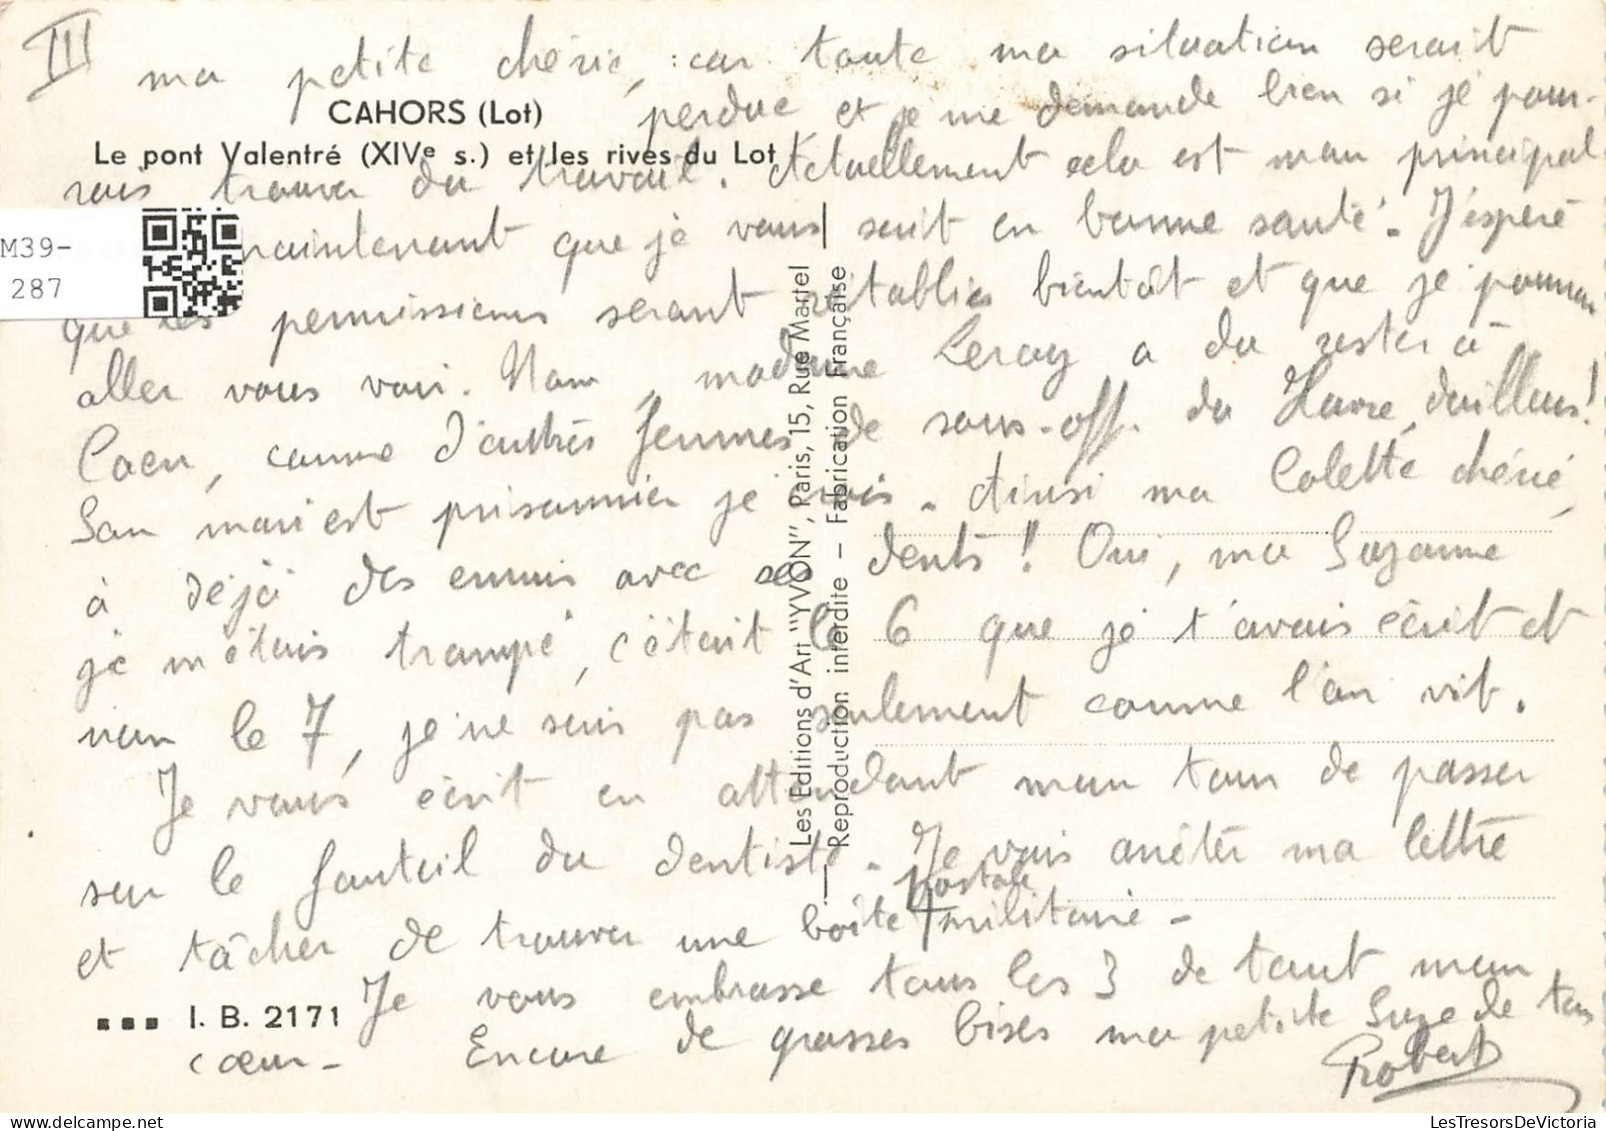 III
ma petite chérie, car toute ma situation serait
CAHORS (Lot)
perdue et je me demande bien si je pour-
Le pont Valentré (XIVe s.) et les rives du Lot
rais trouver du travail. Actuellement cela est mon principal
maintenant que je vous sait en bonne santé. J'espère
M39-
287
que les permissions seront rétablies bientôt et que je pourrai
aller vous voir. Non, madame Leroy a du rester à
Caen, comme d'autres femmes de sous-off. du Havre, d'ailleurs!
Son mari est prisonnier je crois. Ainsi ma Colette chérie,
à déjà des ennuis avec ses dents! Oui, ma Suzanne
je m'étais trompé, c'était le 6 que je t'avais écrit et
non le 7, je ne suis pas seulement comme l'on vit.
Je vous écrit en attendant mon tour de passer
sur le fauteuil du dentiste. Je vais arrêter ma lettre
et tâcher de trouver une boîte postale militaire -
Je vous embrasse tous les 3 de tout mon
I. B. 2171
cœur - Encore de grosses bises ma petite Suze de ton
Robert
Les Editions d'Art "YVON", Paris, 15, Rue Martel
Reproduction interdite - Fabrication Française
LesTresorsDeVictoria.com